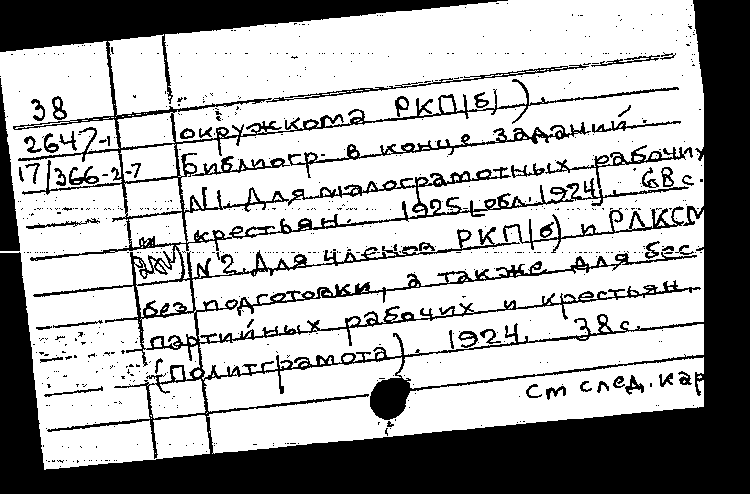 38
окружкома РКП(б)).
2647-1
Библиогр. в конце заданий.
17/366-2-7
N1. Для малограмотных рабочих
крестьян. 1925 [обл. 1924]. 68 с.
N 2. Для членов РКП(б) и РЛКСМ
без подготовки, а также для бес-
партийных рабочих и крестьян.
(Политграмота). 1924. 38 с.
см след. кар